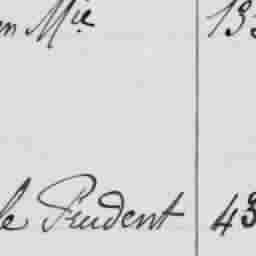 en M.ie 133
le Prudent 43